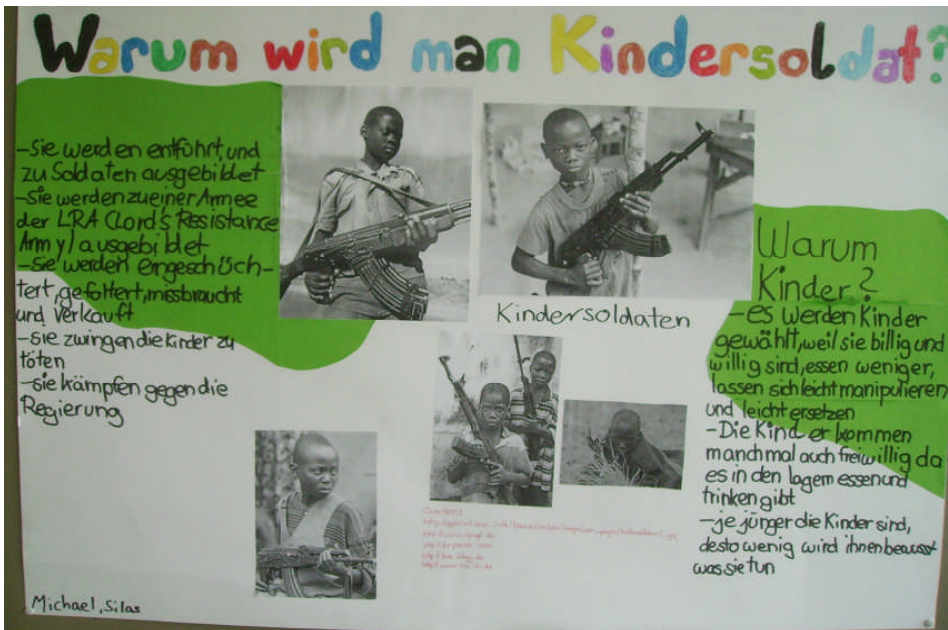 Warum wird man Kindersoldat?
-Sie werden entführt, und
zu Soldaten ausgebildet
-Sie werden zu einer Armee
der LRA (Lord's Resistance
Army) ausgebildet
-Sie werden eingeschüch-
tert, gefoltert, missbraucht
und verkauft
-sie zwingen die kinder zu
töten
-sie kämpfen gegen die
Regierung
Kindersoldaten
Warum
Kinder?
-es werden Kinder
gewählt, weil sie billig und
willig sind, essen weniger,
lassen sich leicht manipulieren
und leicht ersetzen
-Die Kinder kommen
manchmal auch freiwillig da
es in den lagern essen und
trinken gibt
-je jünger die Kinder sind,
desto wenig wird ihnen bewusst
was sie tun
Michael, Silas